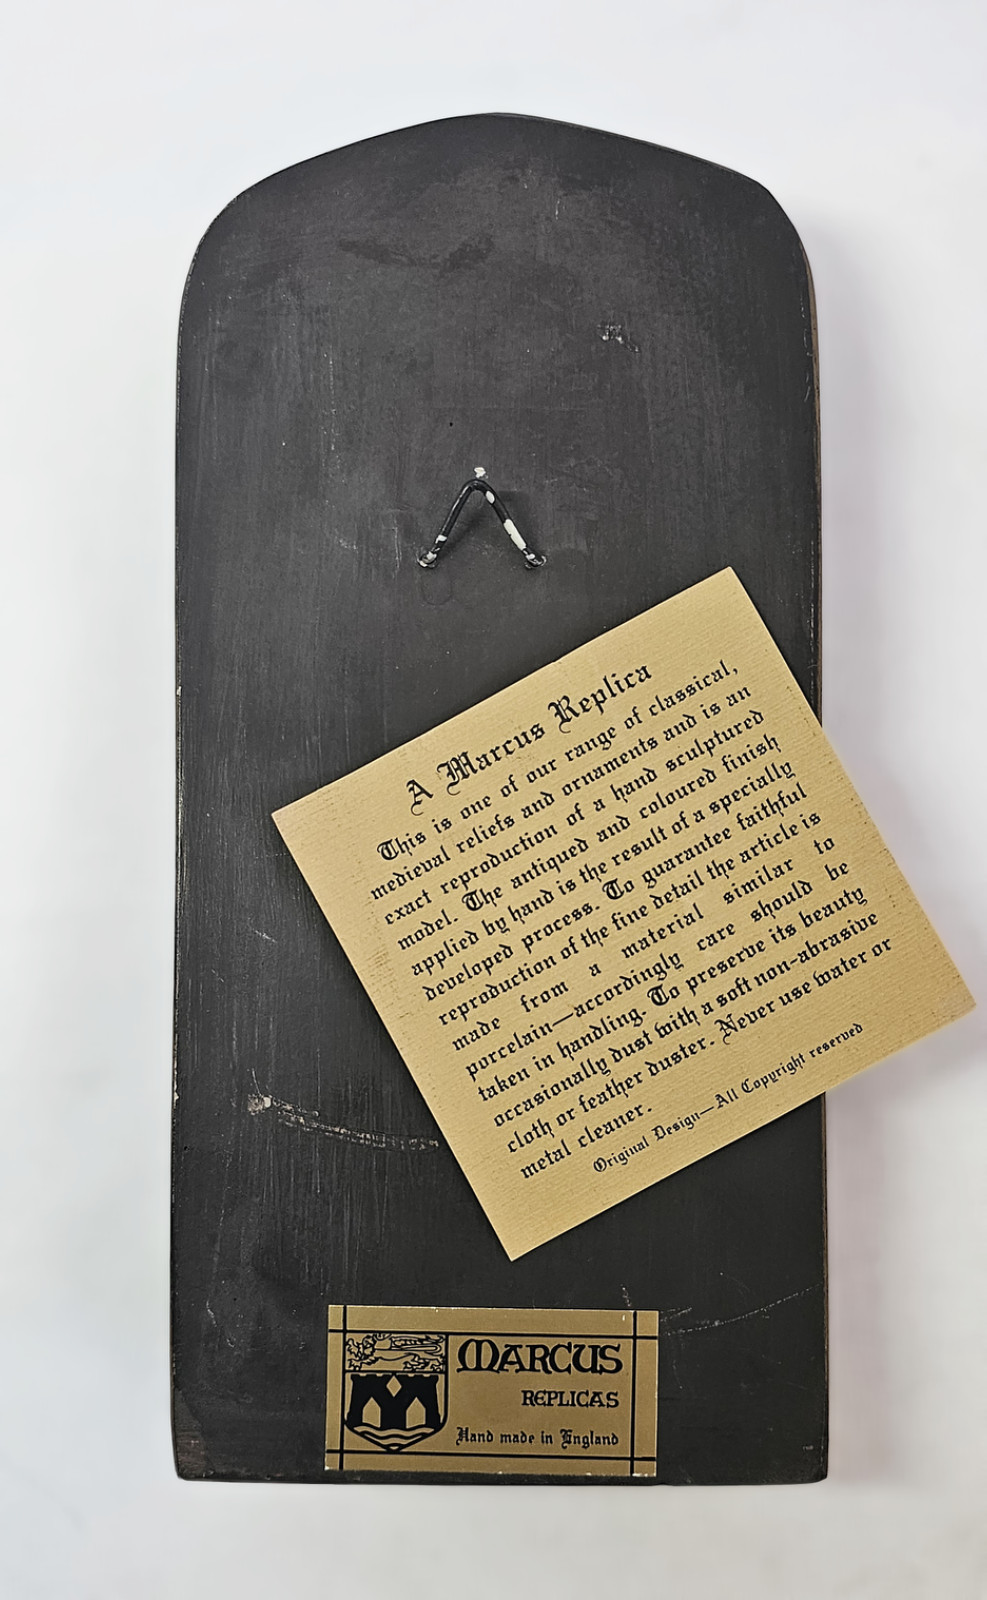 A Marcus Replica
This is one of our range of classical,
medieval reliefs and ornaments and is an
exact reproduction of a hand sculptured
model. The antiqued and coloured finish
applied by hand is the result of a specially
developed process. To guarantee faithful
reproduction of the fine detail the article is
made from a material similar to
porcelain—accordingly care should be
taken in handling. To preserve its beauty
occasionally dust with a soft non-abrasive
cloth or feather duster. Never use water or
metal cleaner.
Original Design—All Copyright reserved
MARCUS
REPLICAS
Hand made in England